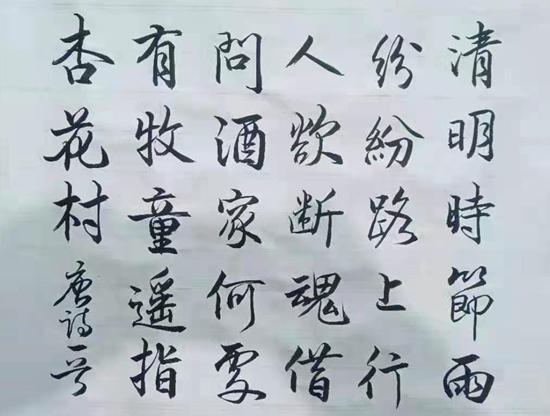 清明時節雨
紛紛路上行
人欲断魂借
問酒家何处
有牧童遥指
杏花村
唐詩一首